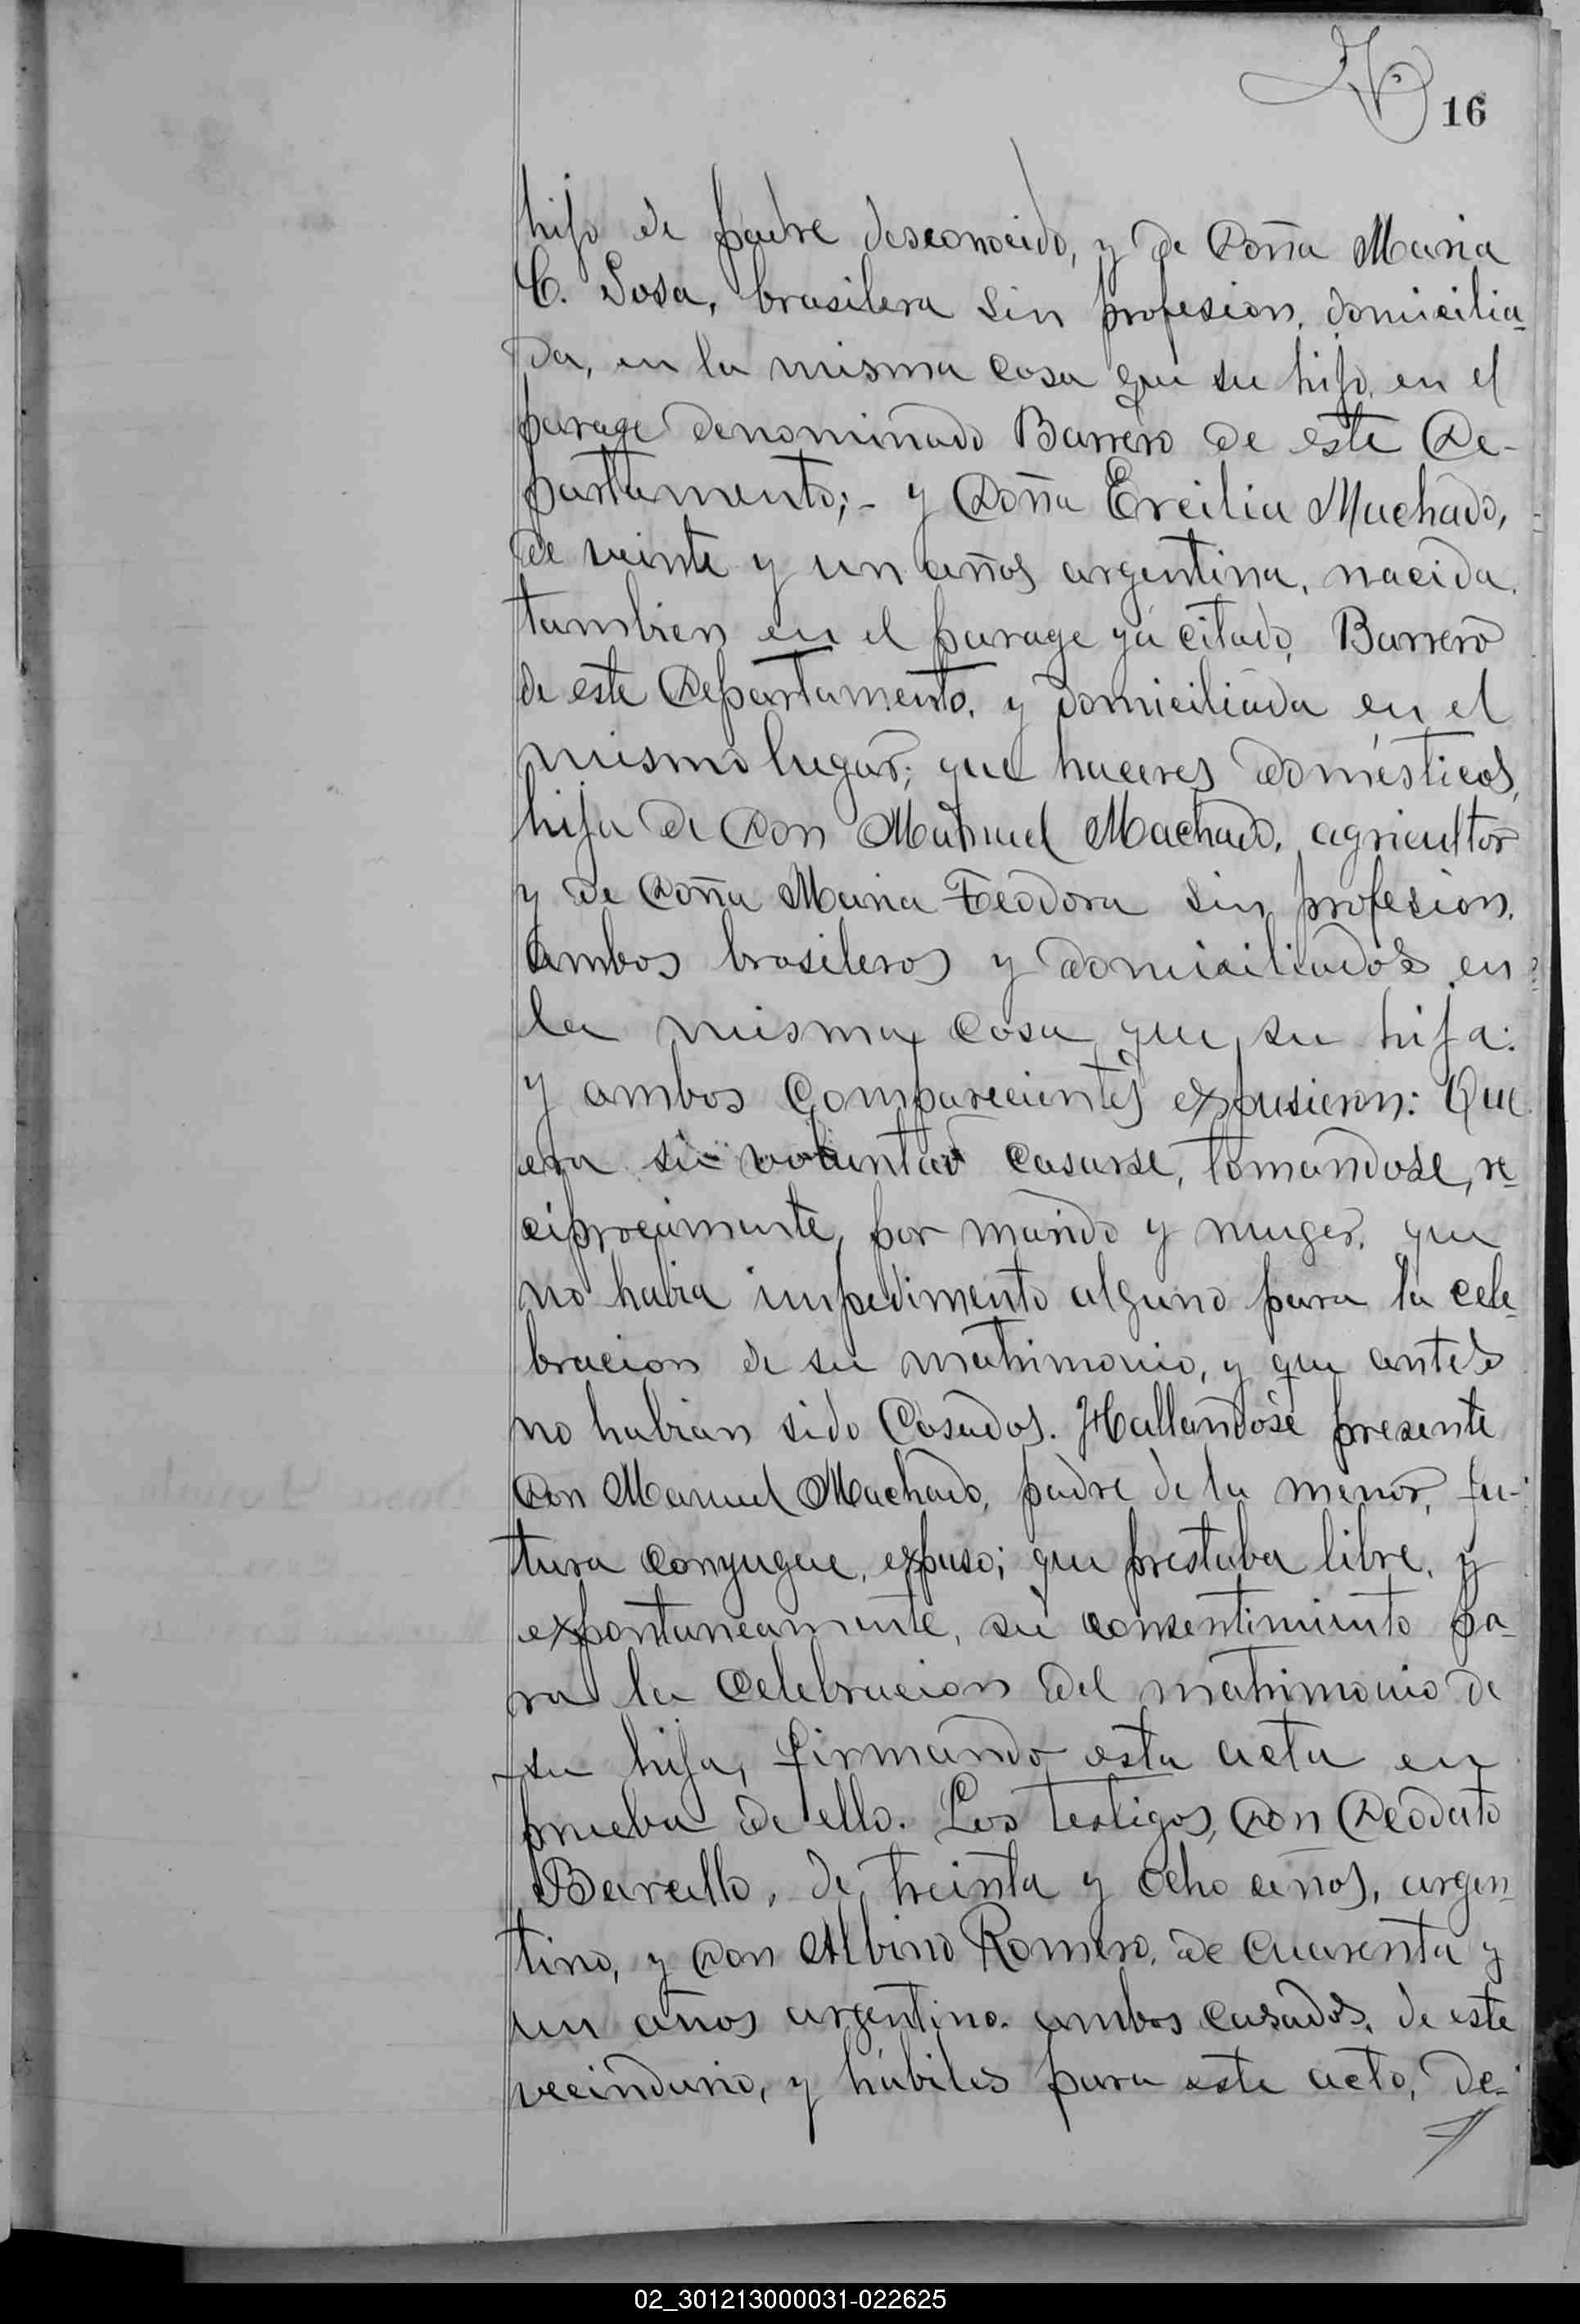 16
hijo de padre desconocido, y de Doña Maria
C. Sosa, brasilera sin profesion, domicilia-
da, en la misma casa que su hijo, en el
parage denominado Barrero de este De-
partamento;- y Doña Ercilia Machado,
de veinte y un años argentina, nacida
tambien en el parage yá citado, Barrero
de este Departamento, y domiciliada en el
mismo lugar; que haceres domésticos,
hija de Don Manuel Machado, agricultor
y de Doña Maria Teodora sin profesion,
ambos brasileros y domiciliados en
la misma casa que su hija:
y ambos Comparecientes expusieron: Que
era su voluntad casarse, tomandose, re-
ciprocamente, por marido y muger, que
no habia impedimento alguno para la cele-
bracion de su matrimonio, y que antes
no habian sido Casados. Hallandose presente
Don Manuel Machado, padre de la menor, fu-
tura conyugue, expuso; que prestaba libre, y
expontaneamente, su consentimiento pa-
ra la celebracion del matrimonio de
su hija, firmando esta acta en
prueba de ello. Los testigos, Don Deodato
de treinta y ocho años, argen-
tino, y Don Albino Romero, de cuarenta y
un años argentino, ambos casados, de este
vecindario, y hábiles para este acto, de-
02_301213000031-022625